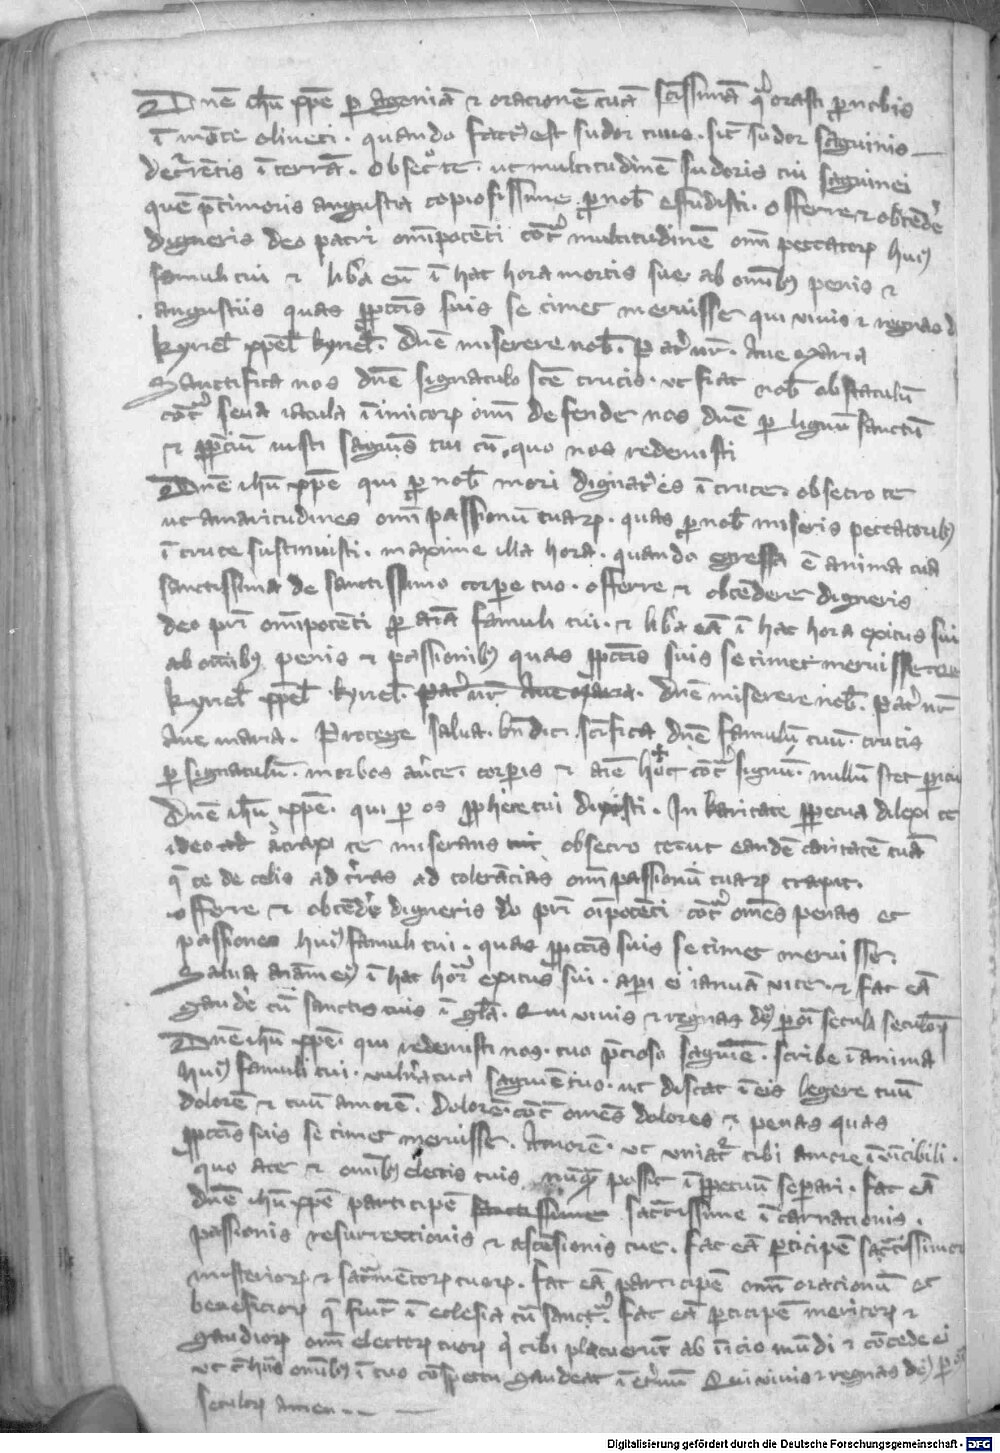 Dnē ihū xpē p agoniā et oracionē tuā scissimā qua orasti pro nobis
ī mōte oliueti · quando factus est sudor tuus · sic sudor saguinis
decurētis ī terrā · Obsecro te · ut multitudinē sudoris tui saguinei
quē p timoris angustia copiosissime pro nob effudisti · offerre et obtēdere
digneris deo patri omīpotēti cōtra multitudinē omī peccatorum huius
famuli tui et libera eū ī hac hora mortis sue ab omībus penis et
angustiis quas pro peccātis suis se timet meruisse qui viuis et regnas d
kyriel xpel kyriel · Dnē miserere nob · Pater nr · Aue maria
Sanctifica nos dnē signaculo scē crucis · ut fiat nob obstaculū
cōtra seua iacula īimicorum omī defende nos dnē p lignū sanctū
et p preciū iusti saguīs tui cū quo nos redemisti
Dnē ihū xpē qui pro nob mori dignatus es ī cruce obsecro te
ut amaritudines omī passionū tuarum · quas pro nob miseris peccatoribus
ī cruce sustinuisti · maxime illa hora · quando egressa ē anima tua
sanctissima de sanctissimo corpe tuo · offerre et obtēdere digneris
deo pri omīpotēti pro aīa famuli tui · et libera eā ī hac hora exitus sui
ab omībus penis et passionibus quas pro pctis suis se timet meruisse
kyriel xpel kyriel · Pater nr Aue maria · Dnē miserere nob · Pater nr
Aue maria · Protege salua · bndic scifica dnē famulū tuū · crucis
p signaculū · morbos auerte · corpis et aīe hoc cōtra signū · nullū stet piculū
Dnē ihū xpē · qui p os prophete tui dixisti · In karitate ppetua dilexi te
ideo ad atraxi te miserans tui obsecro te ut eandē caritatē tuā
que te de celis ad terras ad tolerācias omī passionū tuarum traxit ·
offerre et obtēdere digneris deo pri oīpotēti cōtra omēs penas et
passiones huius famuli tui · quas pro pctis suis se timet meruisse ·
Salua aīam eius ī hac hora exitus sui · api ei ianuā vite · et fac eā
gaudere cū sanctis tuis ī glā · Qui viuis et regnas deus p oīa secula seculorum
Dnē ihū xpē · qui redemisti nos · tuo precioso saguinē · scribe ī anima
huius famuli tui · vulnera tua saguine tuo · ut discat ī eis legere tuū
dolorē et tuū amorē · dolorē cōtra omēs dolores et penas quas
pro pctis suis se timet meruisse · Amorē · ut uniatur tibi amore īuīcibili ·
quo a te et omībus electis tuis nūquam possit ī ppetuū separi · fac eā
dnē ihū xpē participē sanctissime sactissime īcarnacionis ·
passionis resurrectionis et ascēsionis tue · fac eā pticipē sactissimorum
misteriorum et sacramētorum tuorum · fac eā participē omī oracionū et
beneficiorum que fiūt ī eclesia tua sancta · fac eā pticipē meritorum et
gaudiorum omī electorum tuorum qui tibi placuerūt ab īicio mūdi et cōcede ei
ut cū hiis omībus ī tuo cōspectu gaudeat ī eternū Qui viuis et regnas deus p oīa
seculorum Amen
Digitalisierung gefördert durch die Deutsche Forschungsgemeinschaft - DFG